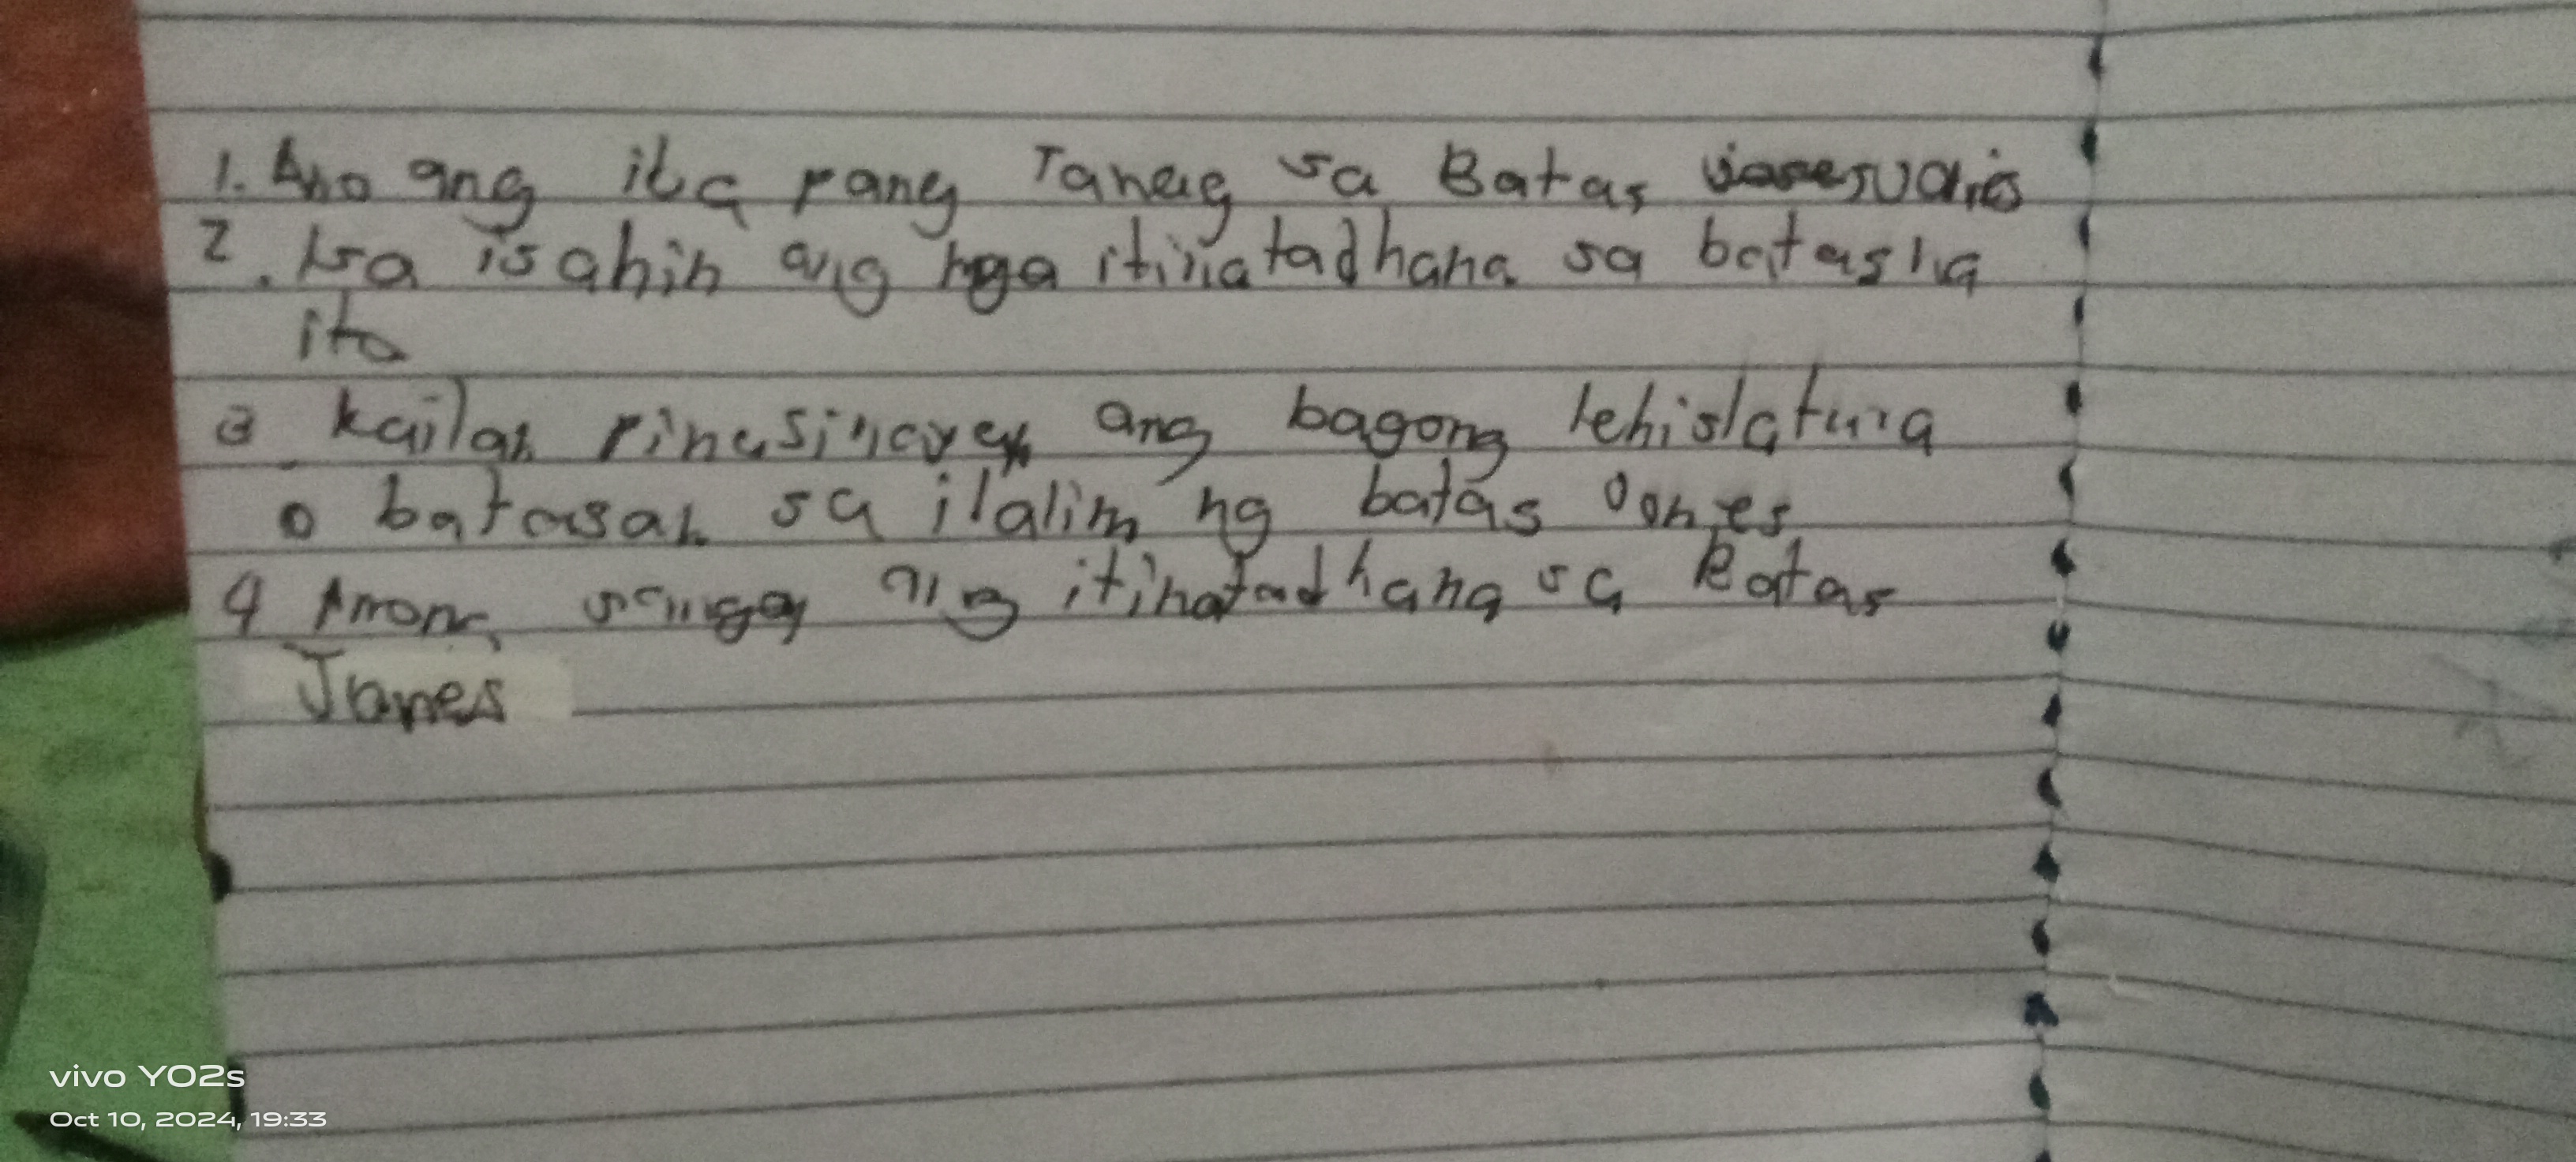 1. Ano ang iba pang Tawag sa Batas
2. Isa isahin ang mga itinatadhana sa batas na
ito
3 kailan ang bagong lehislatura
o batasan sa ilalim ng batas Jones
4 Anong ang itinatadhana sa Batas
Jones
vivo Y02s
Oct 10, 2024, 19:33